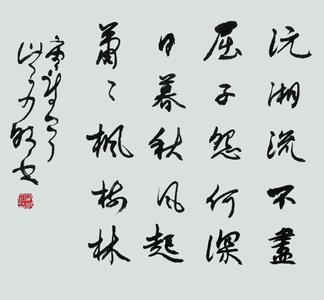 沅湘流不盡
屈子怨何深
日暮秋风起
蕭〻楓樹林